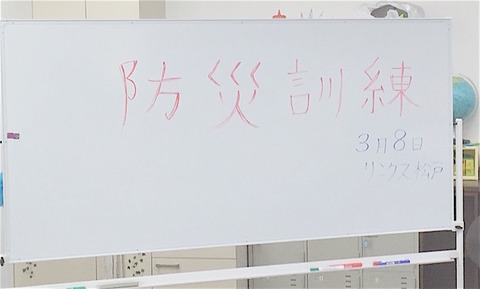 防災訓練
3月8日
リンクス松戸